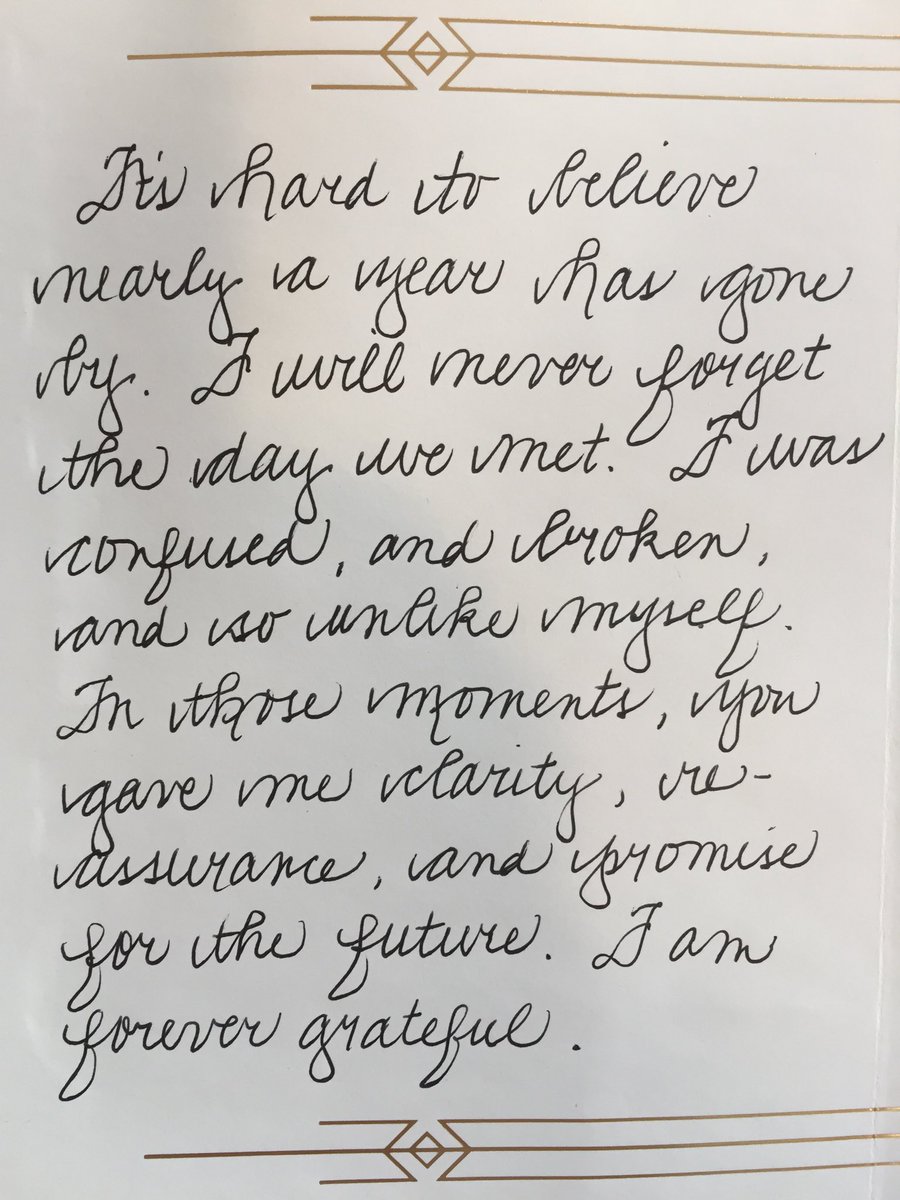 It's hard to believe
nearly a year has gone
by. I will never forget
the day we met. I was
confused, and broken,
and so unlike myself.
In those moments, you
gave me clarity, re-
assurance, and promise
for the future. I am
forever grateful.